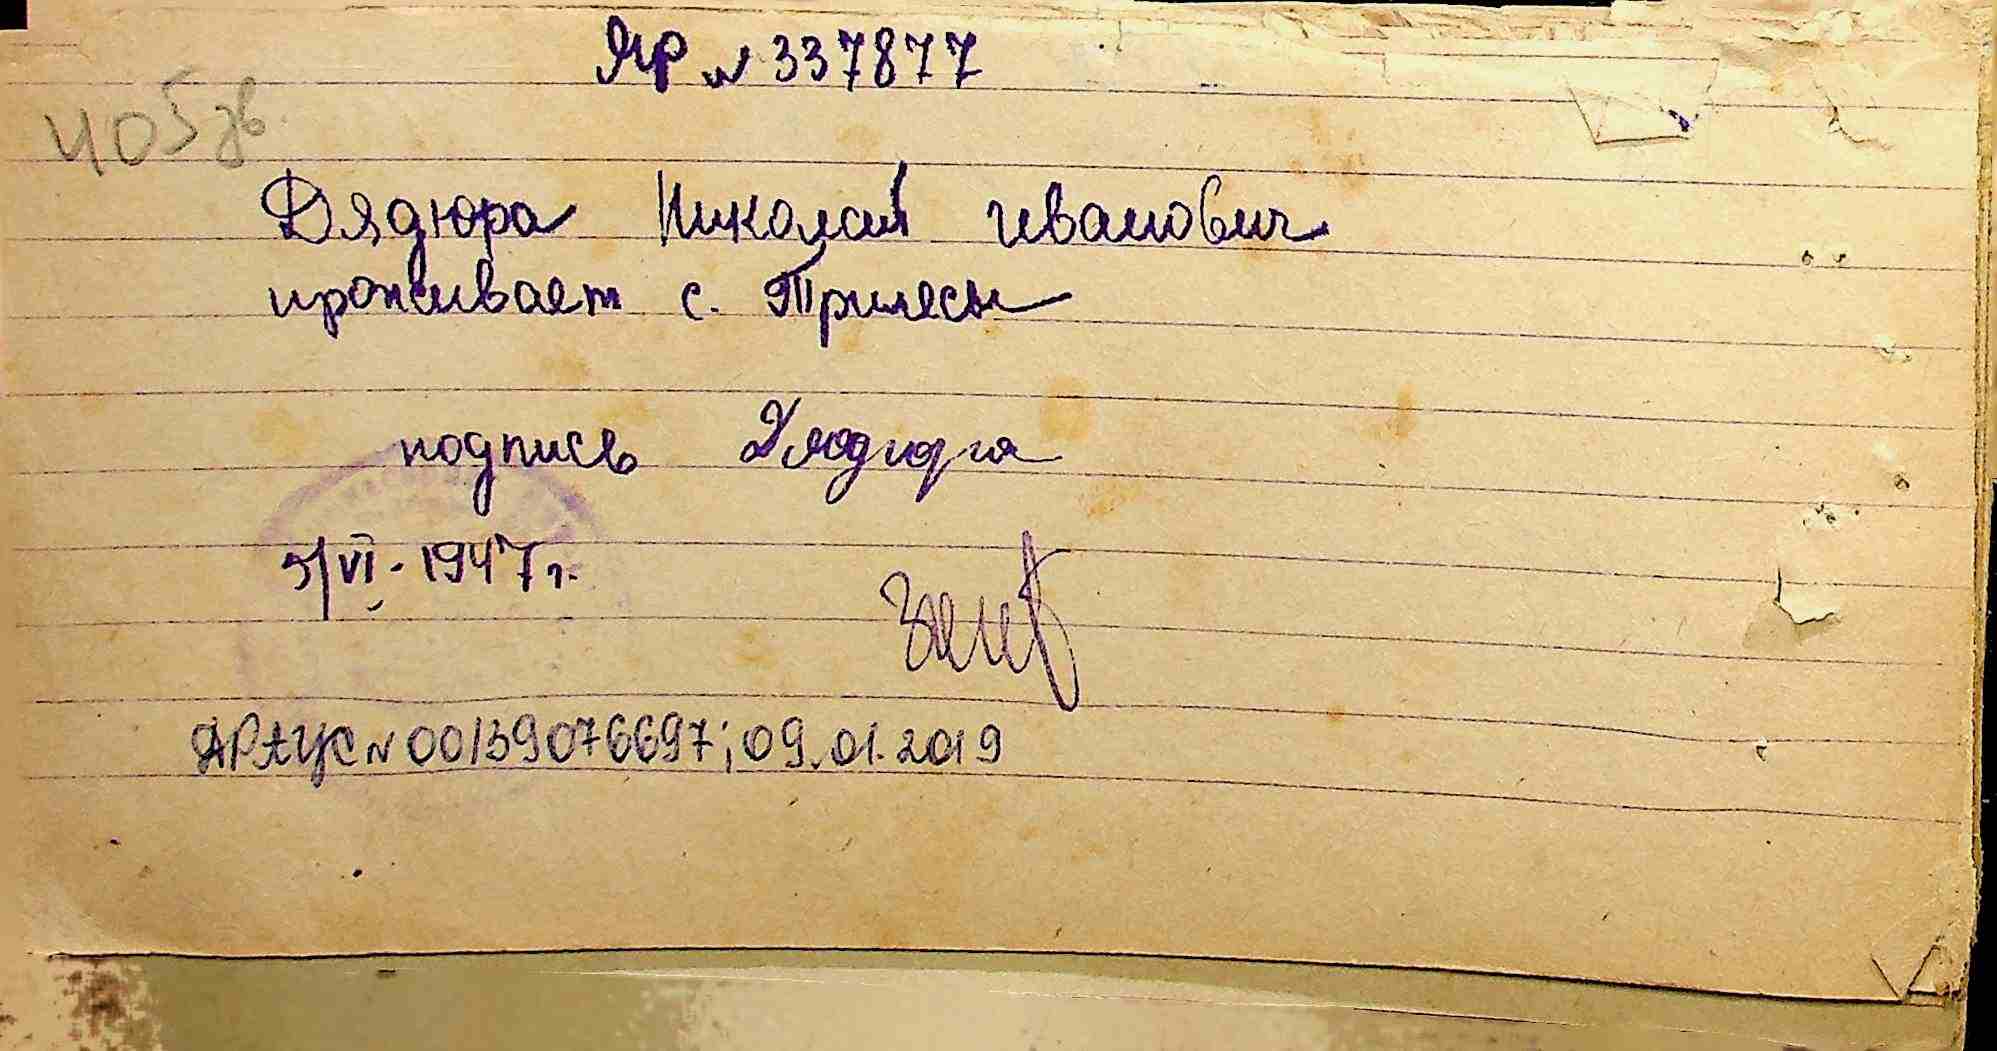 ЯР № 337877
405 зв.
Дядюра Николай Иванович
проживает с. Трилесы
подпись Дядюра
5/VI - 1947 г.
АРАЦС № 00139076697; 09.01.2019